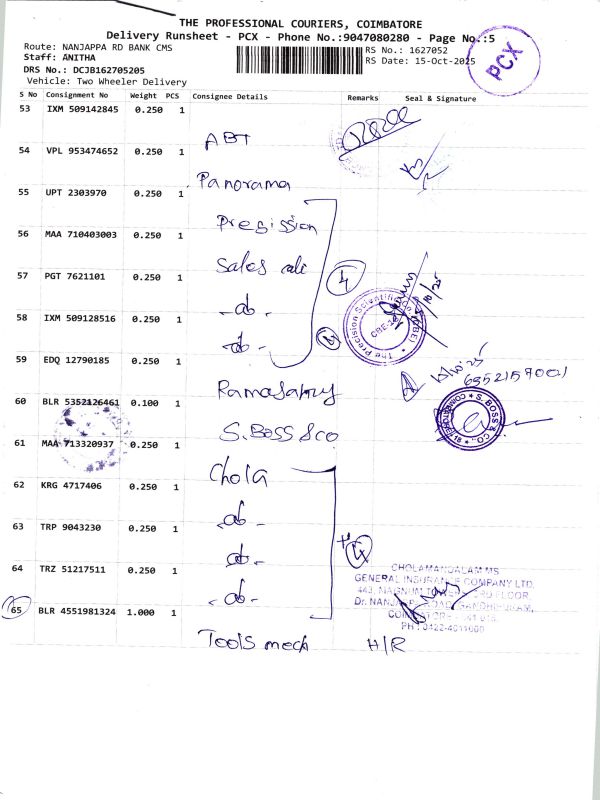 THE PROFESSIONAL COURIERS, COIMBATORE
Delivery Runsheet - PCX - Phone No.:9047080280 - Page No.:5
Route: NANJAPPA RD BANK CMS
RS No.: 1627052
Staff: ANITHA
RS Date: 15-Oct-2025
DRS No.: DCJB162705205
Vehicle: Two Wheeler Delivery
PCX
S No Consignment No Weight PCS Consignee Details Remarks Seal & Signature
53 IXM 509142845 0.250 1
ABT
54 VPL 953474652 0.250 1
Panorama
55 UPT 2303970 0.250 1
Precission
56 MAA 710403003 0.250 1
Sales
57 PGT 7621101 0.250 1
-do-
58 IXM 509128516 0.250 1
-do-
The Precision Scientific
CBE-18
59 EDQ 12790185 0.250 1
Ramasamy
60 BLR 5352126461 0.100 1
S. Boss & co
S. BOSS & CO.
61 MAA 713320937 0.250 1
Chola
62 KRG 4717406 0.250 1
-do-
63 TRP 9043230 0.250 1
-do-
64 TRZ 51217511 0.250 1
-do-
CHOLAMANDALAM MS
GENERAL INSURANCE COMPANY LTD.
65 BLR 4551981324 1.000 1
Tools mech H/R